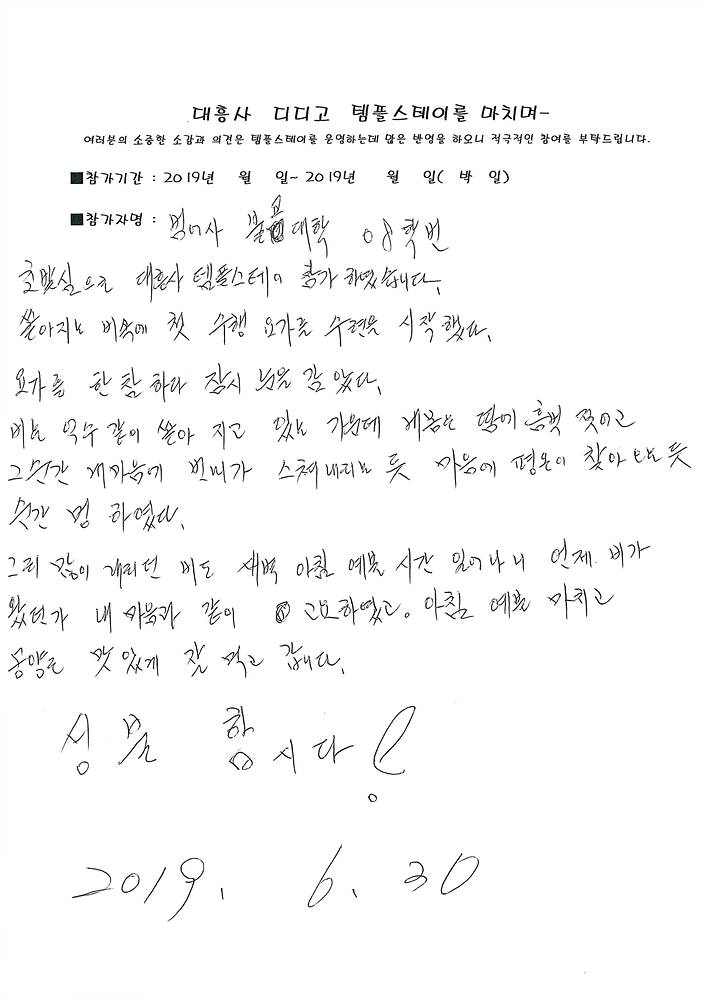 대흥사 디디고 템플스테이를 마치며-
여러분의 소중한 소감과 의견은 템플스테이를 운영하는데 많은 반영을 하오니 적극적인 참여를 부탁드립니다.
■참가기간 : 2019년 월 일~ 2019년 월 일( 박 일)
■참가자명 : 범어사 불교대학 08학번
초발심으로 대흥사 템플스테이 참가 하였습니다.
쏟아지는 비속에 첫 수행 요가를 수련을 시작했다.
요가를 한참 하다 잠시 눈을 감았다.
비는 억수 같이 쏟아 지고 있는 가운데 제몸는 땀에 흠뻑 젖이고
그순간 제마음에 번뇌가 스쳐내리는 듯 마음에 평온이 찾아 오는 듯
순간 멍 하였다.
그리 많이 내리던 비도 새벽 아침 예불 시간 일어나니 언제 비가
왔던가 내 마음과 같이 고요하였고. 아침 예불 마치고
공양을 맛있게 잘 먹고 갑니다.
성불 합시다!
2019. 6. 30